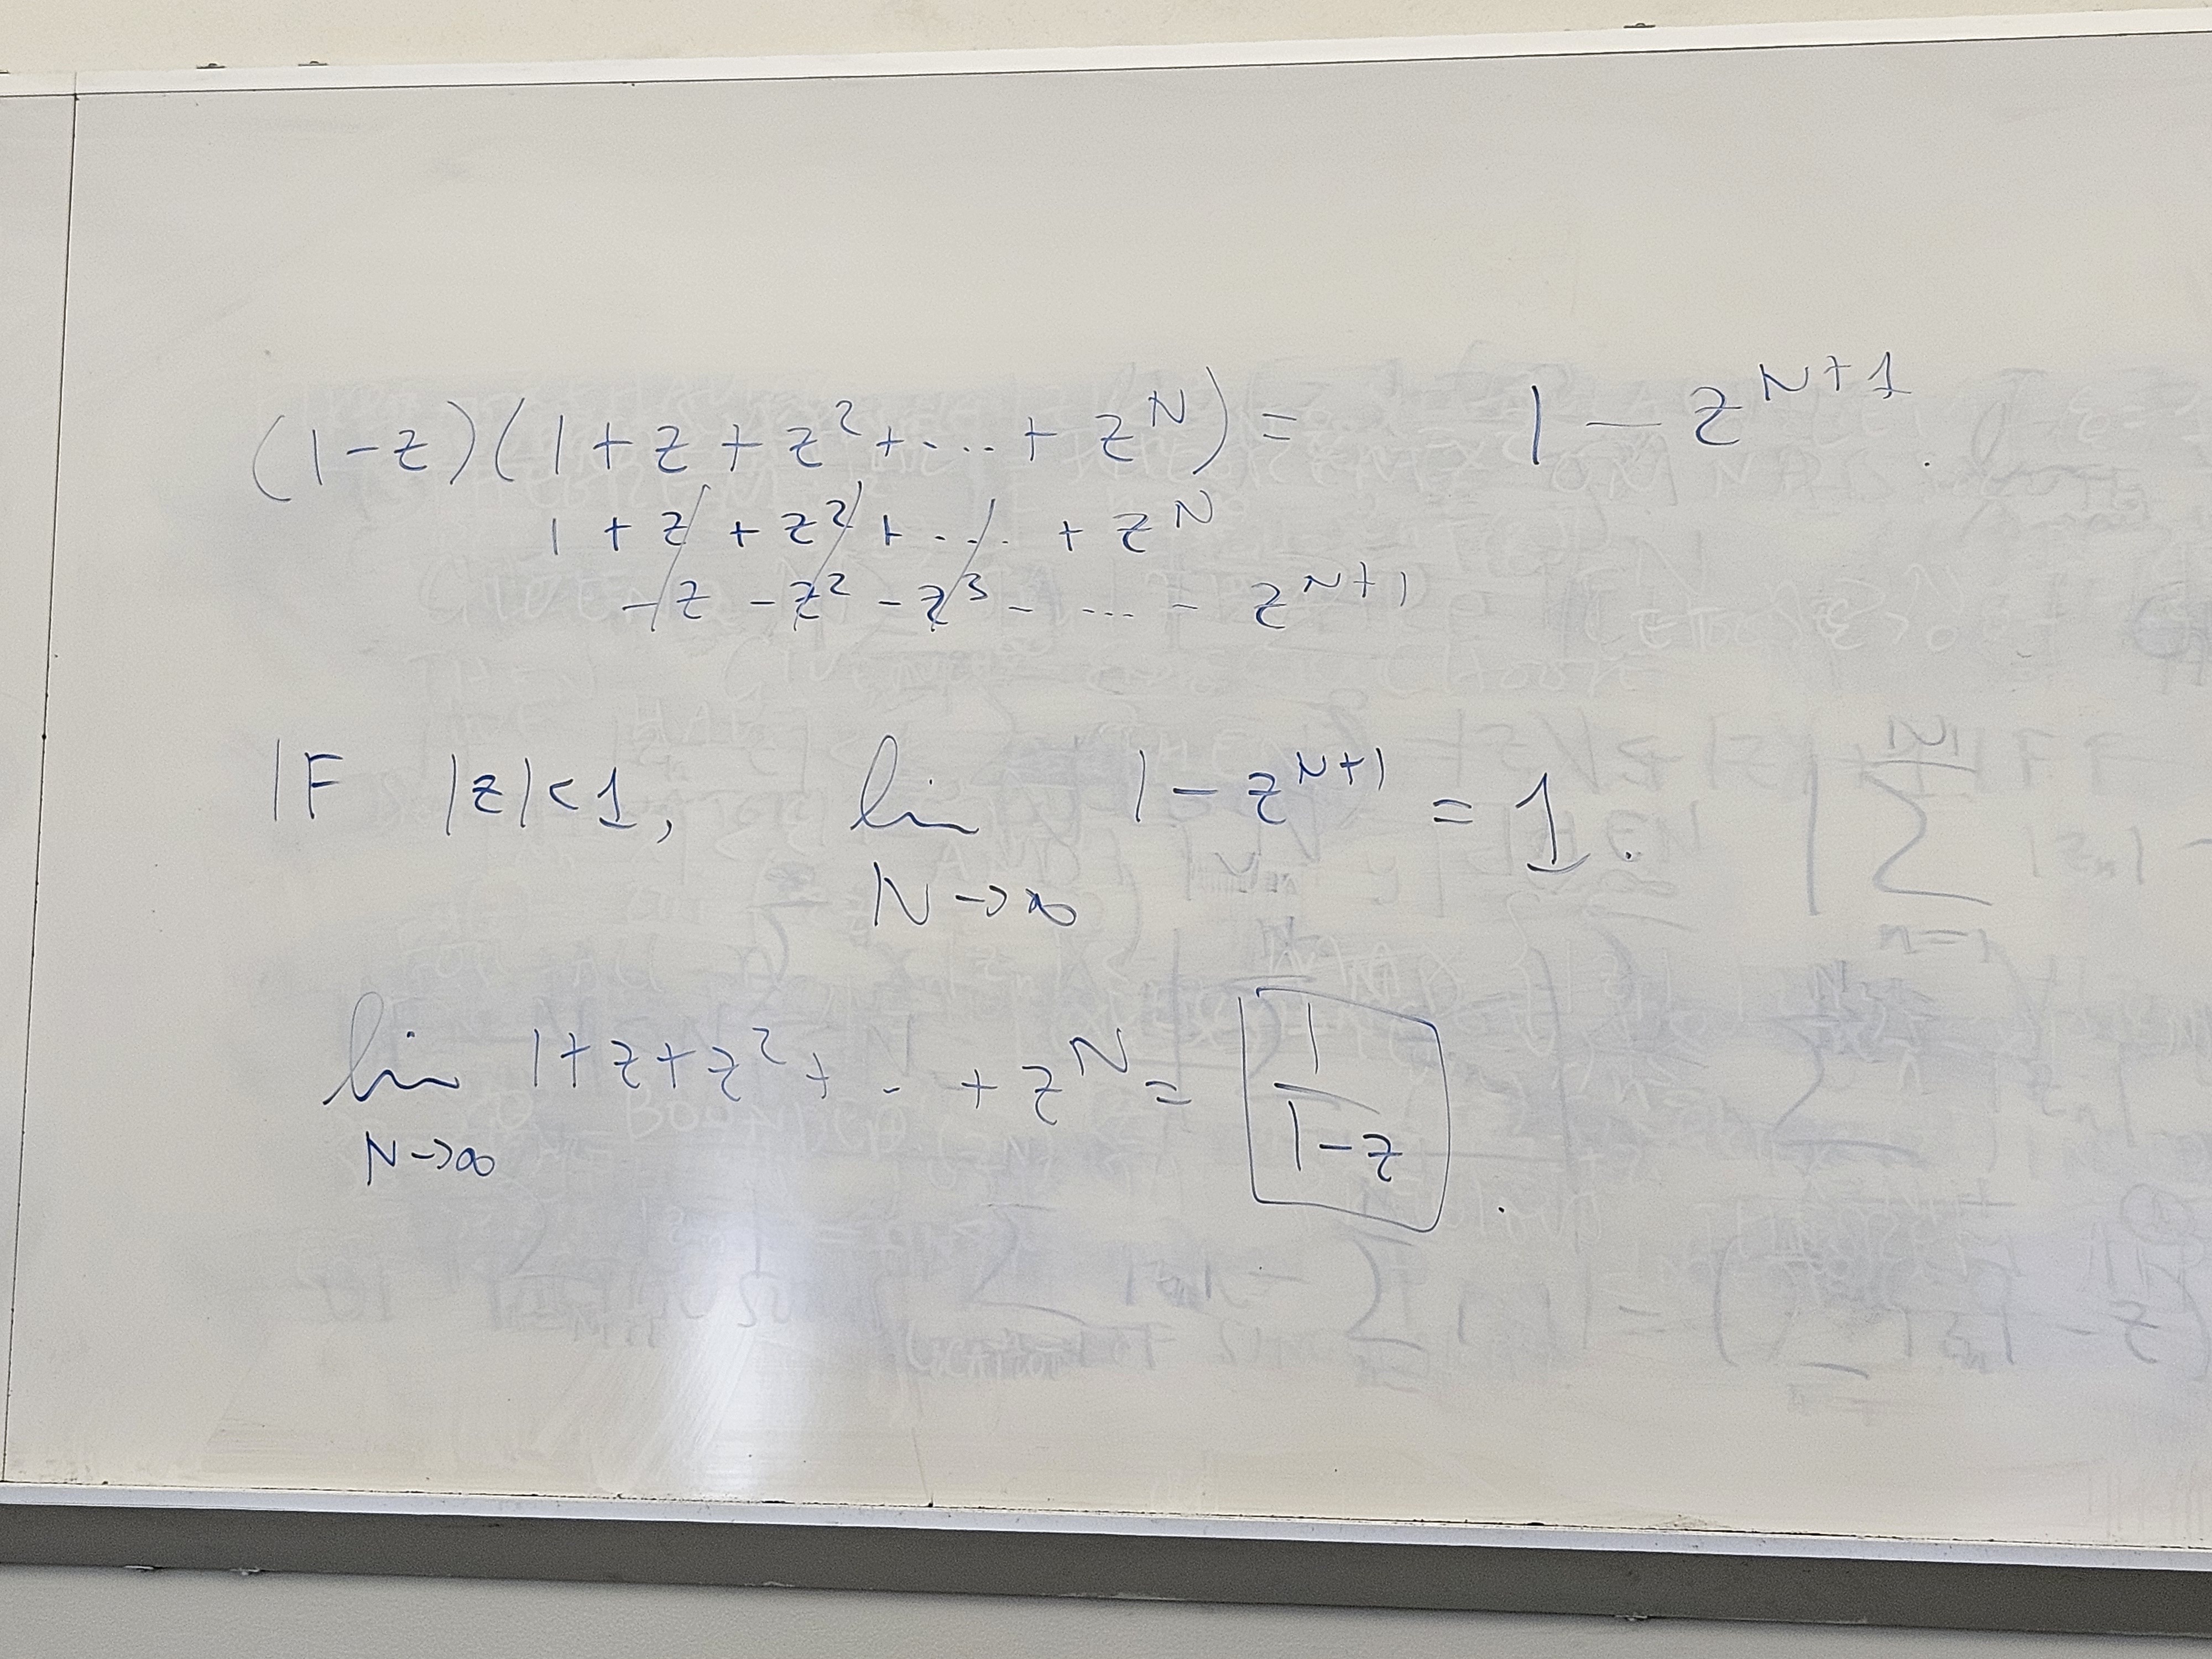 (1-z)(1+z+z²+...+z^N) = 1-z^{N+1}.
1+z+z²+...+z^N
-z-z²-z³-...-z^{N+1}
IF |z|<1, lim_{N→∞} 1-z^{N+1} = 1.
lim_{N→∞} 1+z+z²+..+z^N = \frac{1}{1-z}.